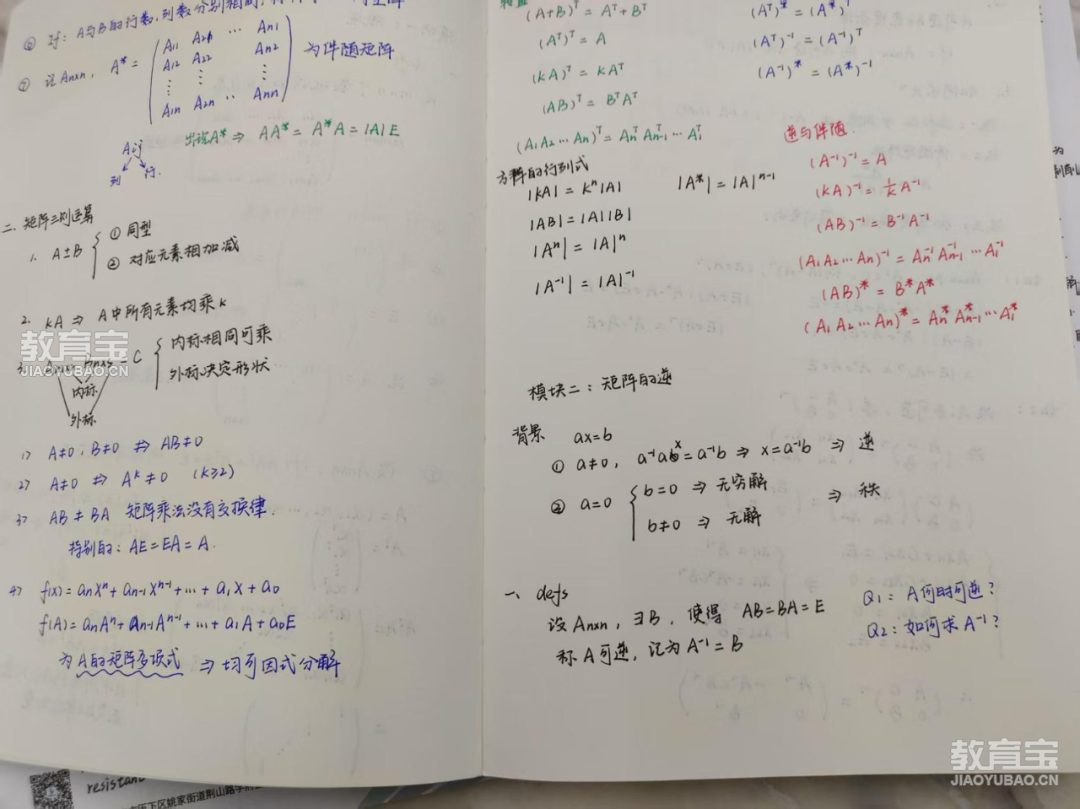 ⑥ 对：A与B的行数，列数分别相同，
⑦ 设Anxn， A* = ( A11 A21 ⋯ An1
A12 A22 An2
⋮ ⋮ ⋮
A1n A2n ⋯ Ann ) 为伴随矩阵
出现A* ⇒ AA* = A*A = |A|E
Aij
列 行
二、矩阵三则运算
1. A±B { ① 同型
② 对应元素相加减
2. kA ⇒ A中所有元素均乘k
= C { 内标相同可乘
外标决定形状
内标
外标
1) A≠0，B≠0 ⇏ AB≠0
2) A≠0 ⇏ A^k≠0 (k≥2)
3) AB≠BA 矩阵乘法没有交换律.
特别的：AE=EA=A.
4) f(x)=anx^n+an-1x^n-1+⋯+a1x+a0
f(A)=anA^n+an-1A^n-1+⋯+a1A+a0E
为A的矩阵多项式 ⇒ 均可因式分解
(A+B)^T = A^T+B^T
(A^T)^T = A
(kA)^T = kA^T
(AB)^T = B^TA^T
(A1A2⋯An)^T = An^T An-1^T ⋯ A1^T
(A^T)* = (A*)^T
(A^T)^-1 = (A^-1)^T
(A^-1)* = (A*)^-1
方阵的行列式
|kA| = k^n|A| |A*| = |A|^n-1
|AB| = |A||B|
|A^n| = |A|^n
|A^-1| = |A|^-1
逆与伴随
(A^-1)^-1 = A
(kA)^-1 = 1/k A^-1
(AB)^-1 = B^-1A^-1
(A1A2⋯An)^-1 = An^-1 An-1^-1 ⋯ A1^-1
(AB)* = B*A*
(A1A2⋯An)* = An* An-1* ⋯ A1*
模块二：矩阵的逆
背景 ax=b
① a≠0，a^-1ax=a^-1b ⇒ x=a^-1b ⇒ 逆
② a=0 { b=0 ⇒ 无穷解
b≠0 ⇒ 无解 ⇒ 秩
一、defs
设Anxn，∃B，使得 AB=BA=E
称A可逆，记为A^-1=B
Q1：A何时可逆？
Q2：如何求A^-1？
教育宝
JIAOYUBAO.CN
教育宝
JIAOYUBAO.CN
resistan